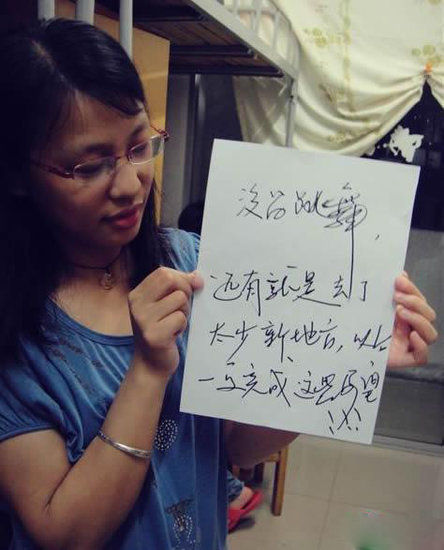 没学跳舞，
还有就是去了
太少新地方，以后
一定完成这些愿望
!!!